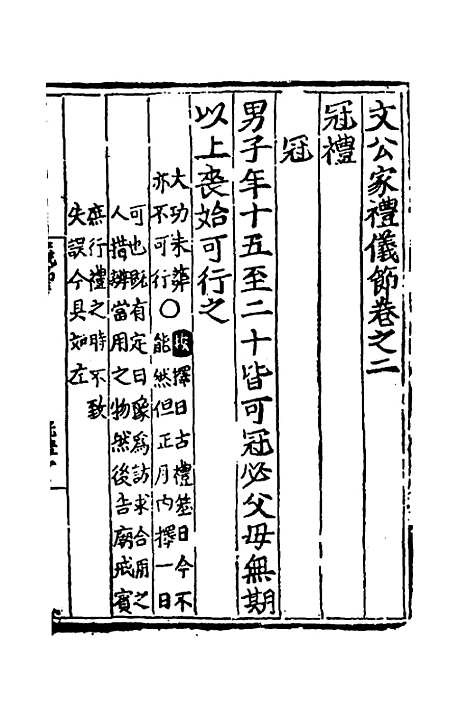 文公家禮儀節卷之二
冠禮
冠
男子年十五至二十皆可冠必父母無期
以上喪始可行之
大功未葬
亦不可行〇按擇日古禮筮日今不
能然但正月內擇一日
可也旣有定日豫為訪求合用之
人措辨當用之物然後告廟戒賓
庶行禮之時不致
失誤今具如左